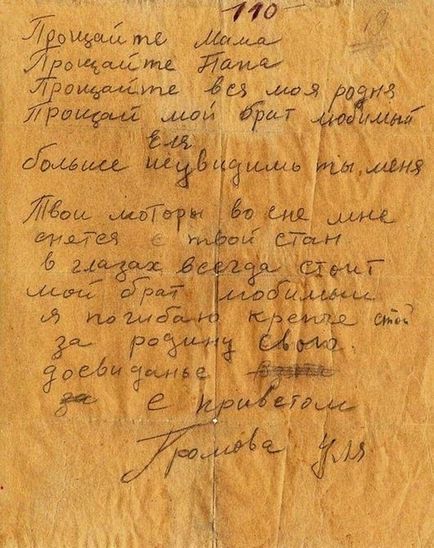 110
19
Прощайте Мама
Прощайте Папа
Прощайте вся моя родня
Прощай мой брат любимый
Еля
больше неувидишь ты, меня
Твои моторы во сне мне
снется є твой стан
в глазах всегда стоит
мой брат любимый
я погибаю крепче стой
за родину свою.
досвиданье
за с приветом
Громова Уля